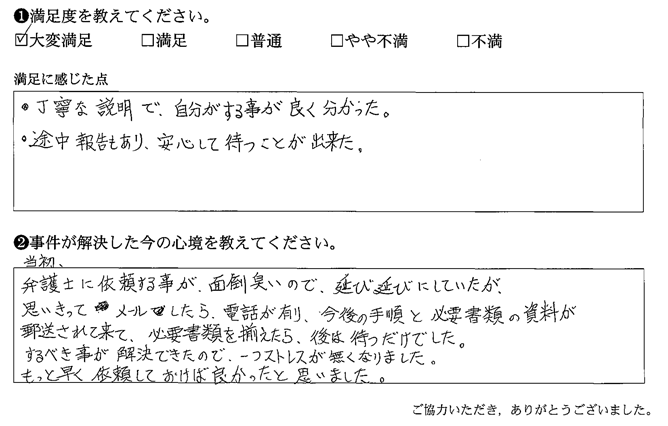 ❶満足度を教えてください。
☑大変満足 □満足 □普通 □やや不満 □不満
満足に感じた点
・丁寧な説明で、自分がする事が良く分かった。
・途中報告もあり、安心して待つことが出来た。
❷事件が解決した今の心境を教えてください。
当初、
弁護士に依頼する事が、面倒臭いので、延び延びにしていたが、
思いきってメールしたら、電話が有り、今後の手順と必要書類の資料が
郵送されて来て、必要書類を揃えたら、後は待つだけでした。
するべき事が解決できたので、一つストレスが無くなりました。
もっと早く依頼しておけば良かったと思いました。
ご協力いただき，ありがとうございました。